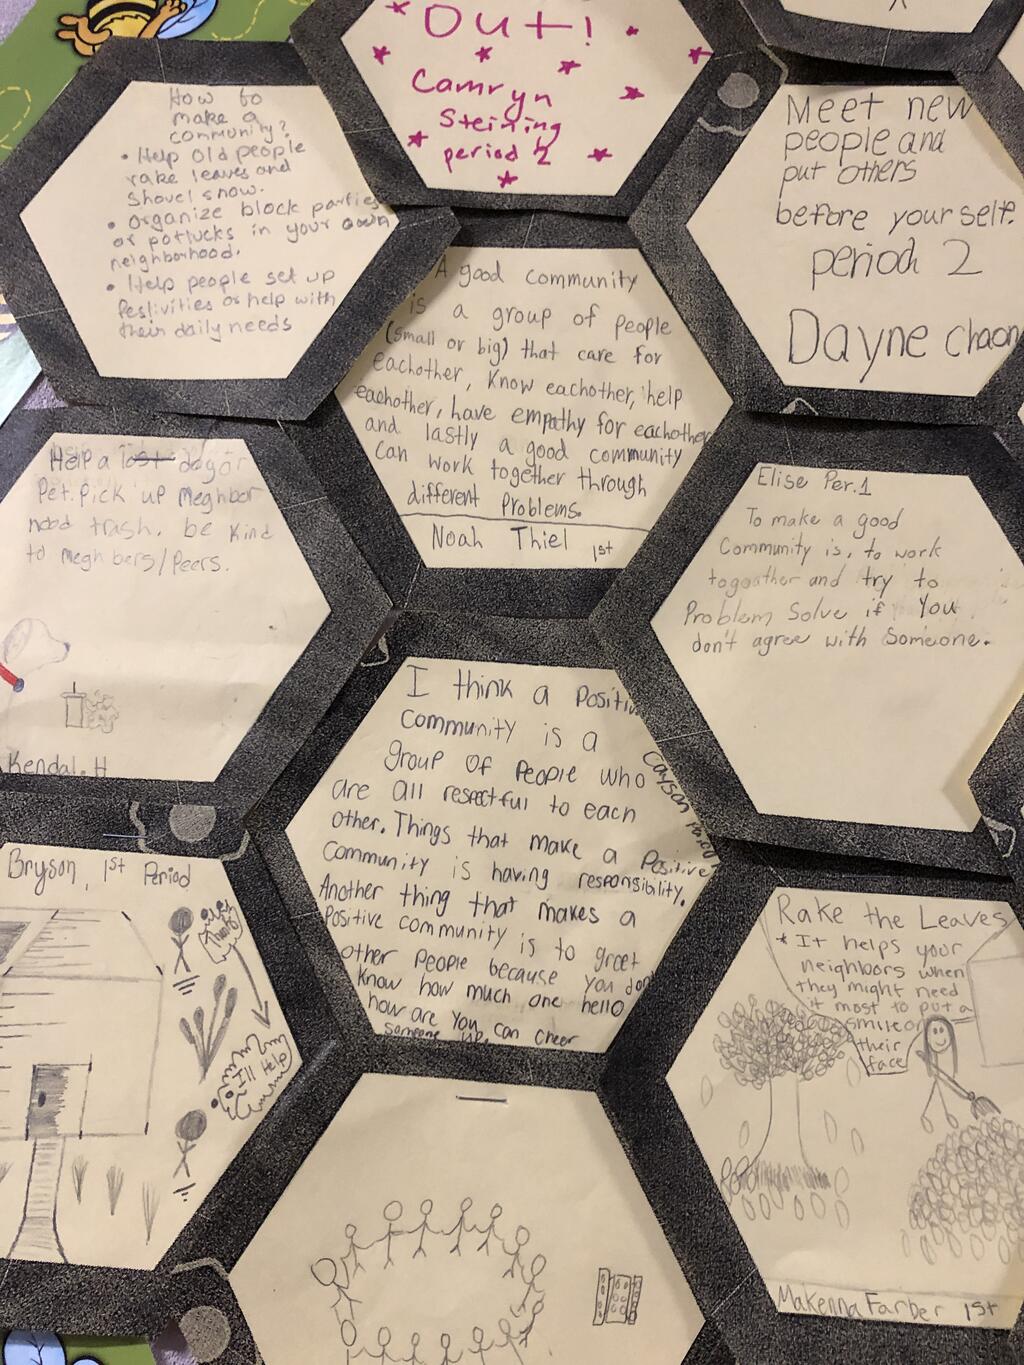 Out!
Camryn
Steining
period 2
How to
make a
community?
• Help old people
rake leaves and
shovel snow.
• Organize block parties
or potlucks in your own
neighborhood.
• Help people set up
festivities or help with
their daily needs
Meet new
people and
put others
before your self.
period 2
Dayne Chaon
A good community
is a group of people
(small or big) that care for
eachother, know eachother, help
eachother, have empathy for eachother
and lastly a good community
can work together through
different problems.
Noah Thiel 1st
Help a lost dog or
Pet. Pick up meghbor
hood trash. be kind
to meghbers/Peers.
Kendal.H
Elise Per.1
To make a good
Community is, to work
togoather and try to
Problem Solve if You
don't agree with Someone.
I think a Positiv
Community is a
group of People who
are all respectful to each
other. Things that make a Positive
community is having responsibility.
Another thing that makes a
Positive community is to greet
other People because you don
know how much one hello
how are you can cheer
someone up.
Bryson, 1st Period
I'll Help
Rake the Leaves
* It helps your
neighbors when
they might need
it most to put a
smile on
their
face
Makenna Farber 1st